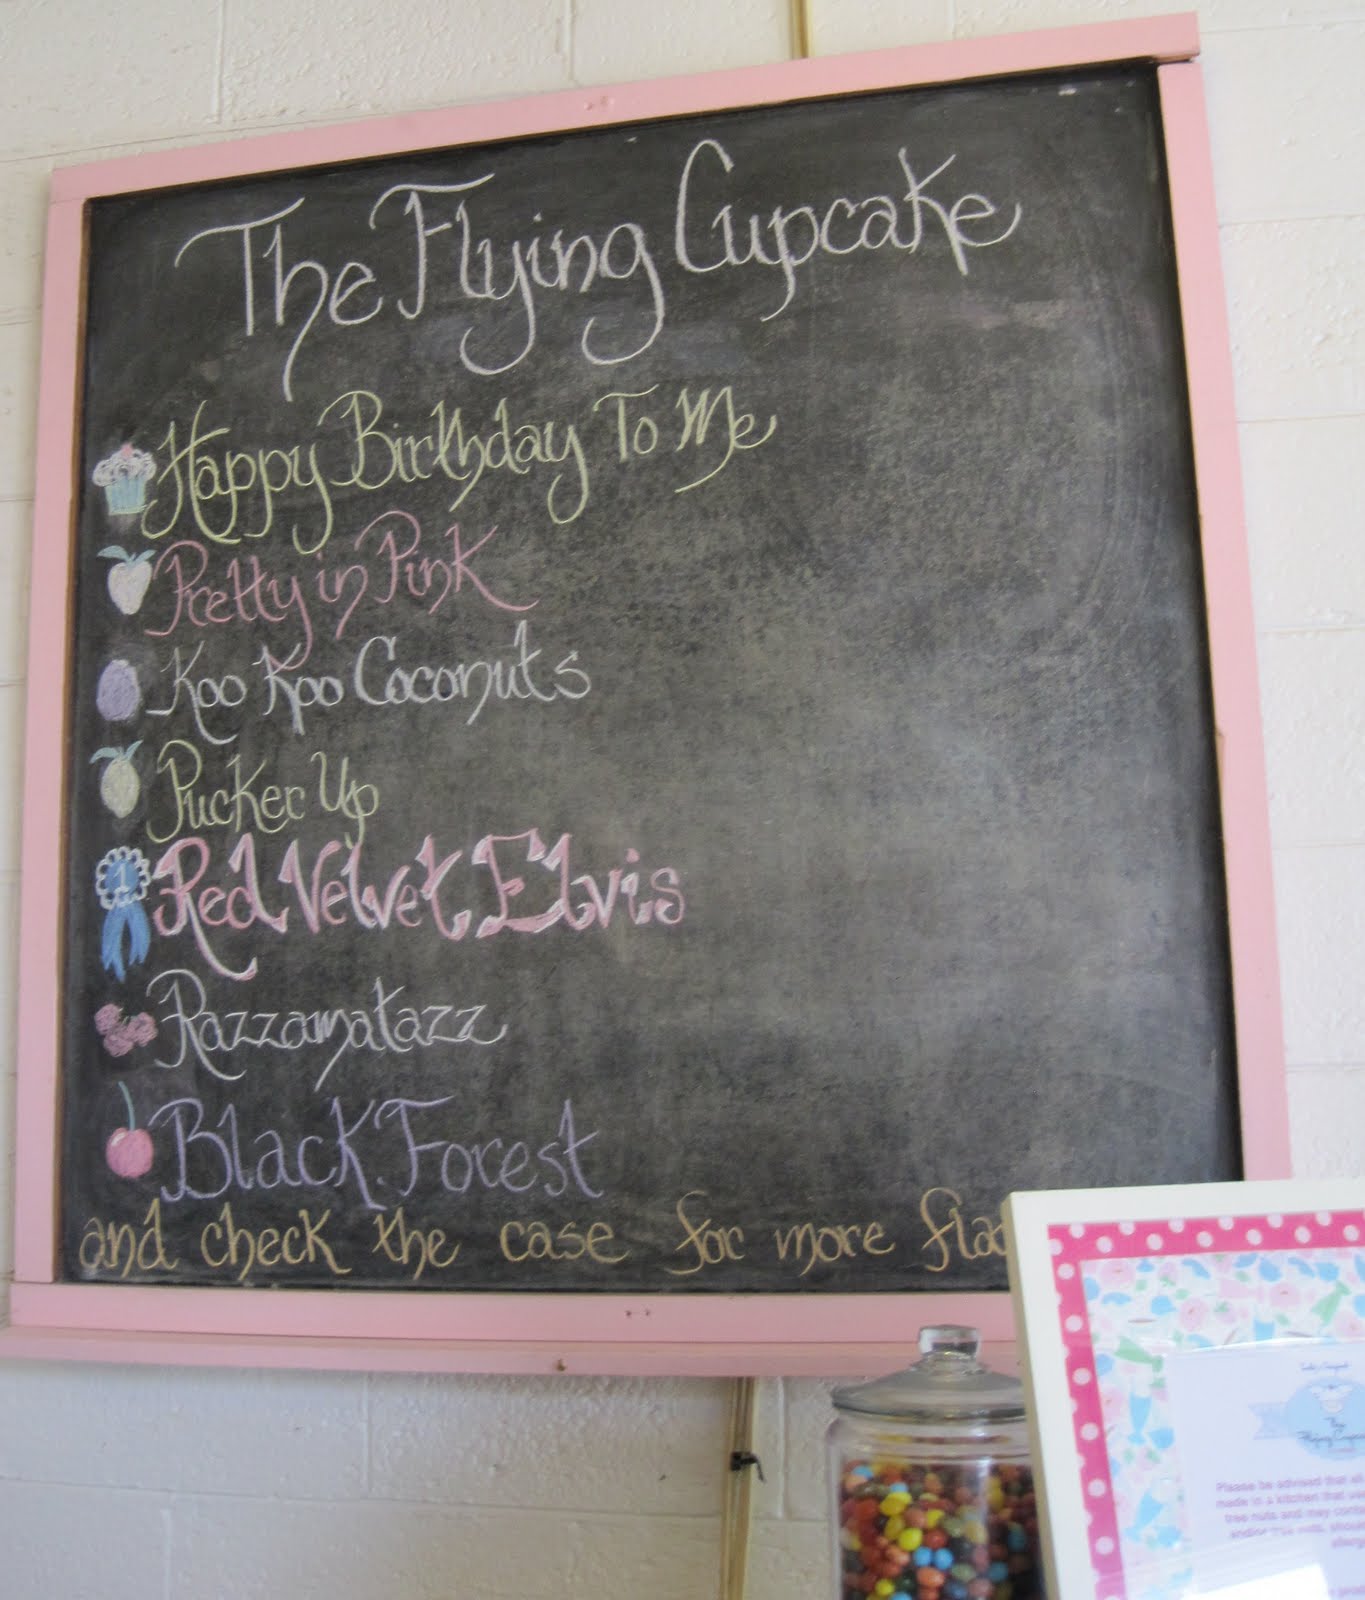 The Flying Cupcake
Happy Birthday To Me
Pretty in Pink
Koo Koo Coconuts
Pucker Up
1
Red Velvet Elvis
Razzamatazz
Black Forest
and check the case for more fla
The
Flying Cupca
Please be advised that all
made in a kitchen that
tree nuts and may conta